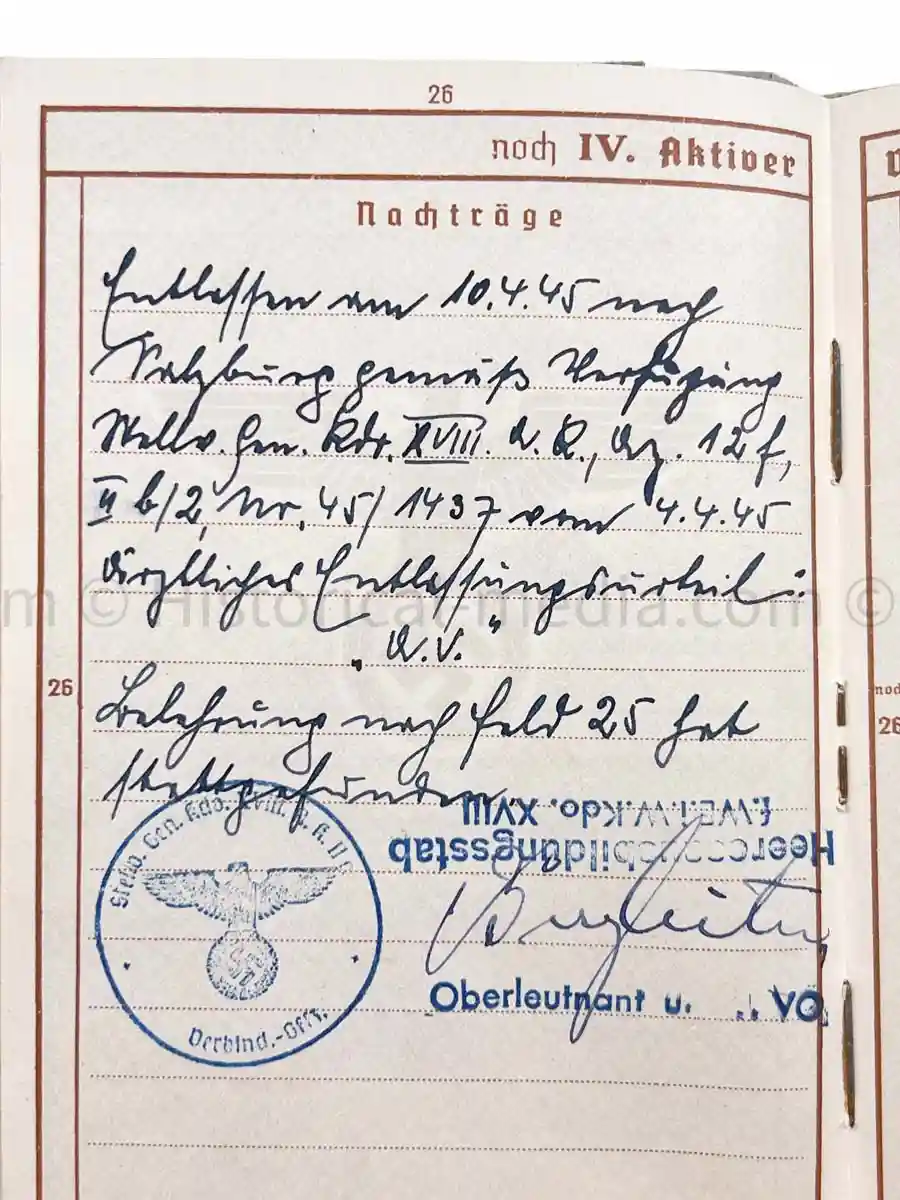 26
noch IV. Aktiver
Nachträge
Entlassen am 10.4.45 nach
Salzburg gemäß Verfügung
Stellv. Gen. Kdo. XVIII. A. K., Az. 12 f,
II b/2, Nr. 45/1437 vom 4.4.45
Ärztliches Entlassungsurteil:
„a.v.“
26
Belehrung nach Feld 25 hat
stattgefunden
f.WE.i.W.Kdo. XVIII
Heeresausbildungsstab
Stellv. Gen. Kdo. XVIII. A. K.
Verbind.-Offz.
Oberleutnant u. VO
noch
26
© Historical-media.com ©